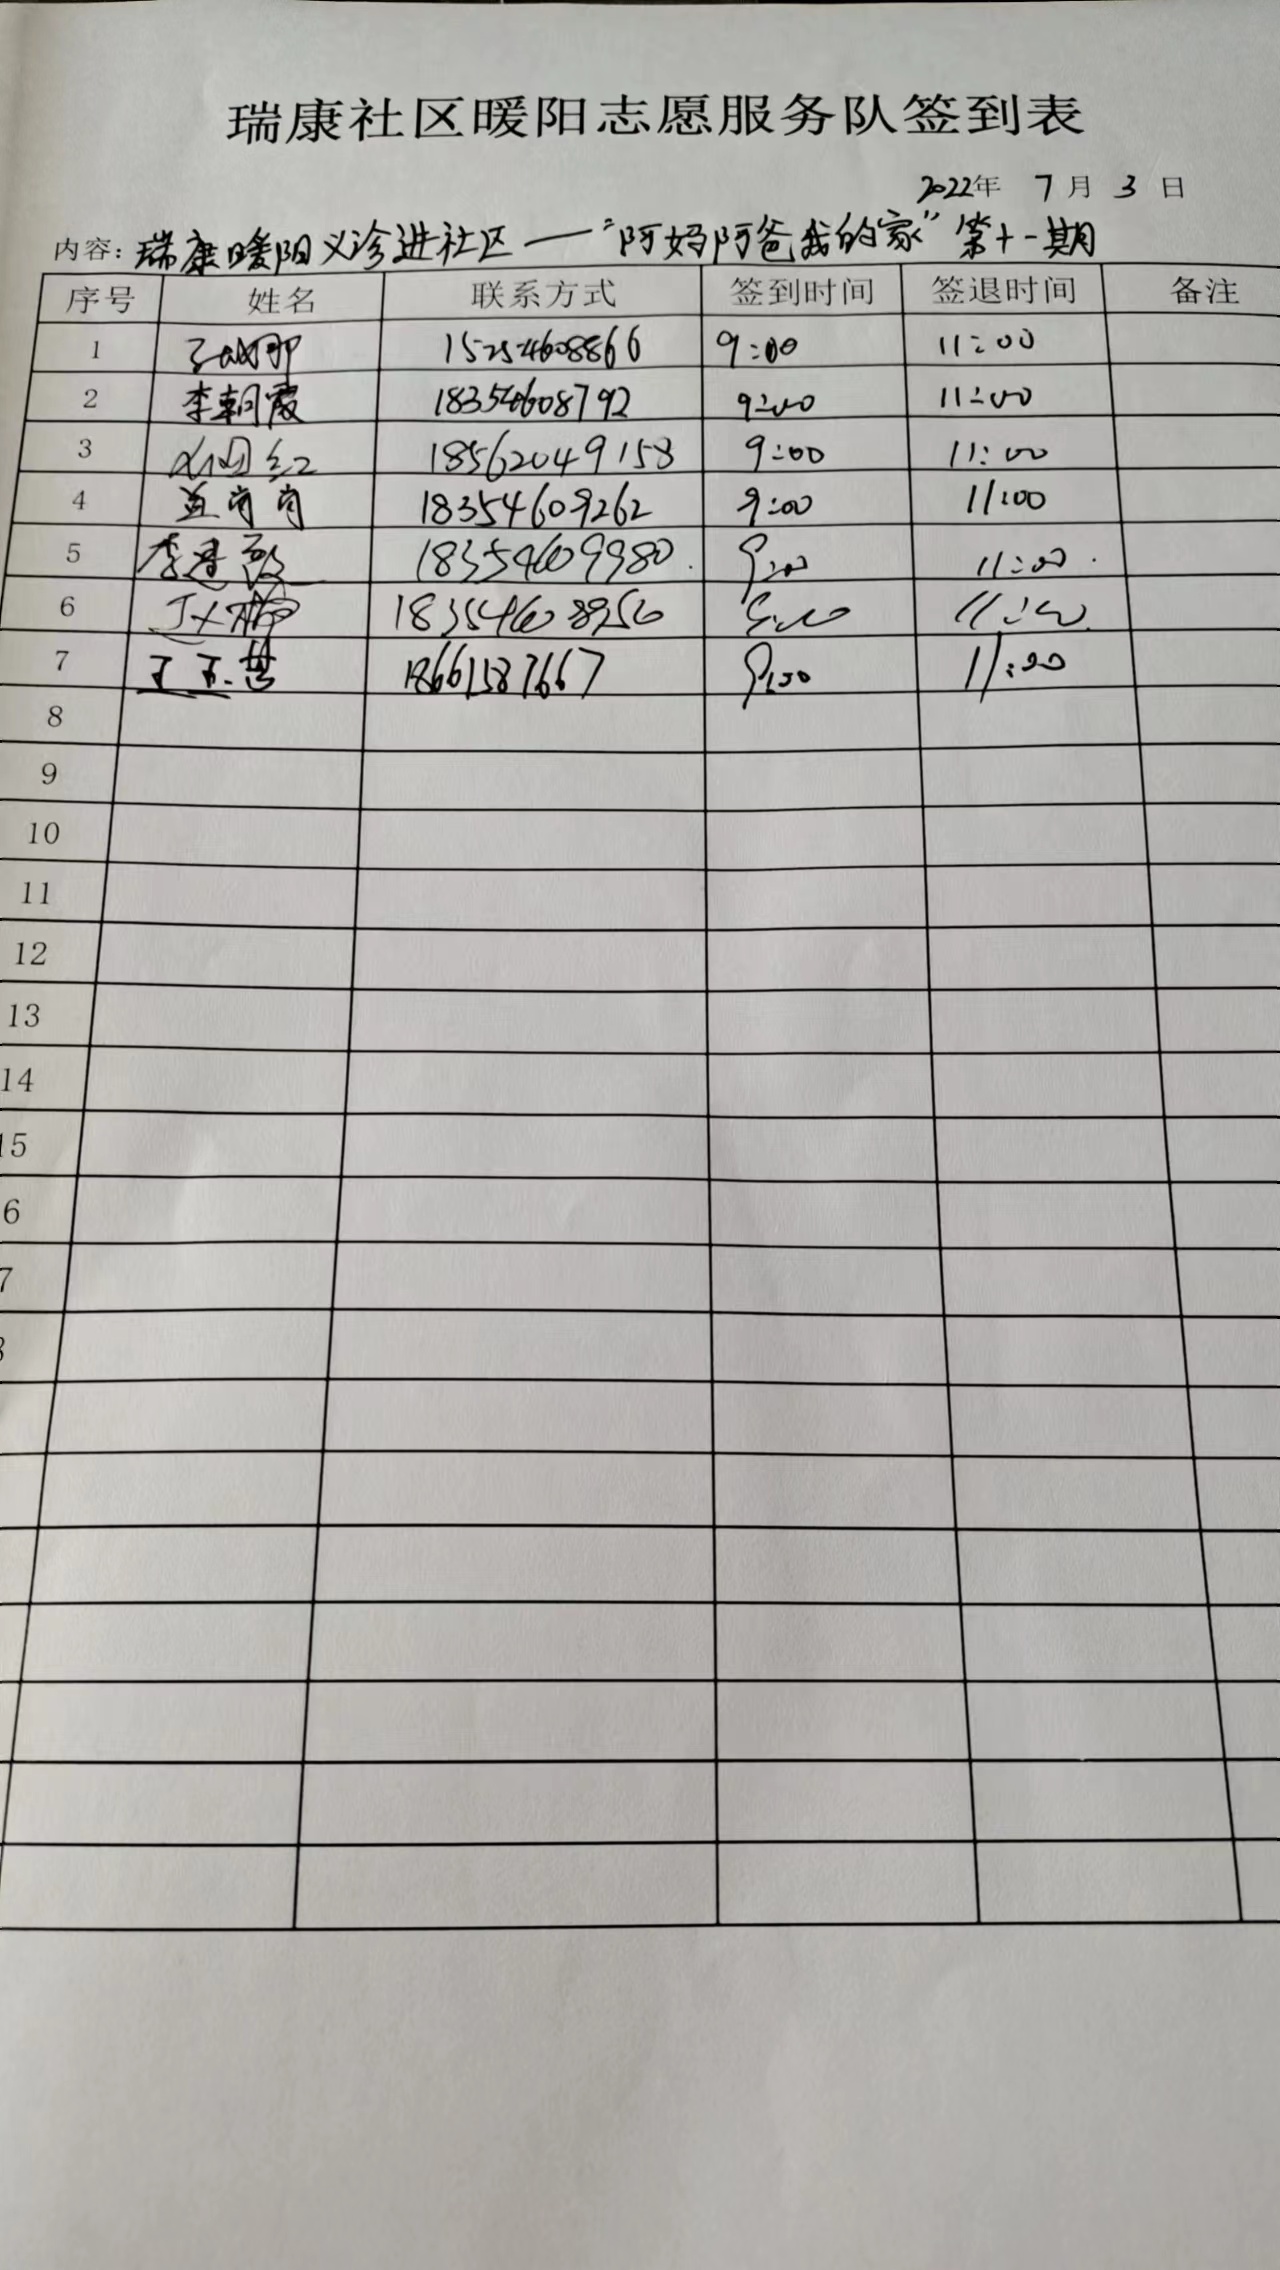 瑞康社区暖阳志愿服务队签到表
2022年 7月3日
内容：瑞康暖阳义诊进社区——“阿妈阿爸我的家”第十一期
序号 姓名 联系方式 签到时间 签退时间 备注
1 15254608866 9:00 11:00
2 李朝霞 18354608792 9:00 11:00
3 18562049158 9:00 11:00
4 18354609262 9:00 11:00
5 18354609980 9:00 11:00
6 18354608956
7 18661587667 9:00 11:00
8
9
10
11
12
13
14
15
6
7
8